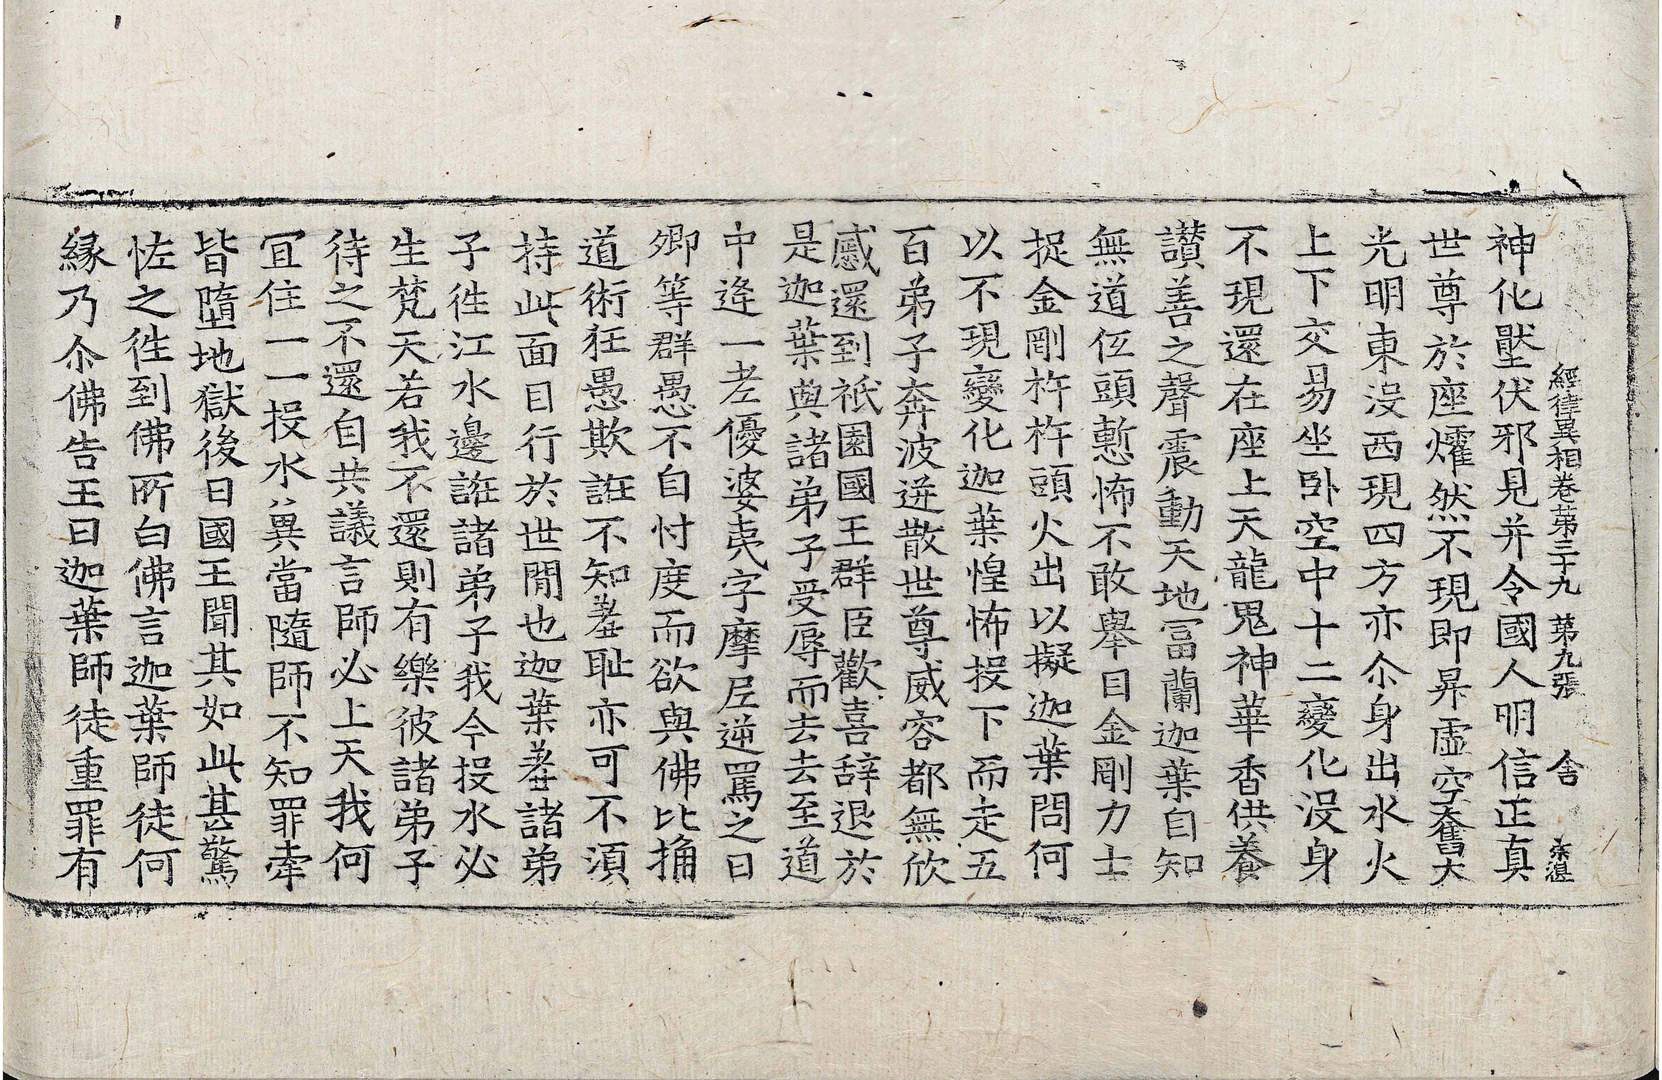 經律異相卷第三十九 第九張 舍
神化壓伏邪見并令國人明信正真
世尊於座㸌然不現即昇虛空奮大
光明東沒西現四方亦尒身出水火
上下交易坐卧空中十二變化沒身
不現還在座上天龍鬼神華香供養
讚善之聲震動天地冨蘭迦葉自知
無道伍頭慙怖不敢舉目金剛力士
捉金剛杵杵頭火出以擬迦葉問何
以不現變化迦葉惶怖投下而走五
百弟子奔波迸散世尊威容都無欣
慼還到祇園國王群臣歡喜辞退於
是迦葉與諸弟子受辱而去去至道
中逢一老優婆夷字摩尼逆罵之曰
卿等群愚不自忖度而欲與佛比捔
道術狂愚欺誑不知羞耻亦可不湏
持此面目行於世閒也迦葉羞諸弟
子徃江水邊誑諸弟子我今投水必
生梵天若我不還則有樂彼諸弟子
待之不還自共議言師必上天我何
冝住一一投水兾當隨師不知罪牽
皆墮地獄後日國王聞其如此甚驚
恠之徃到佛所白佛言迦葉師徒何
緣乃尒佛告王曰迦葉師徒重罪有